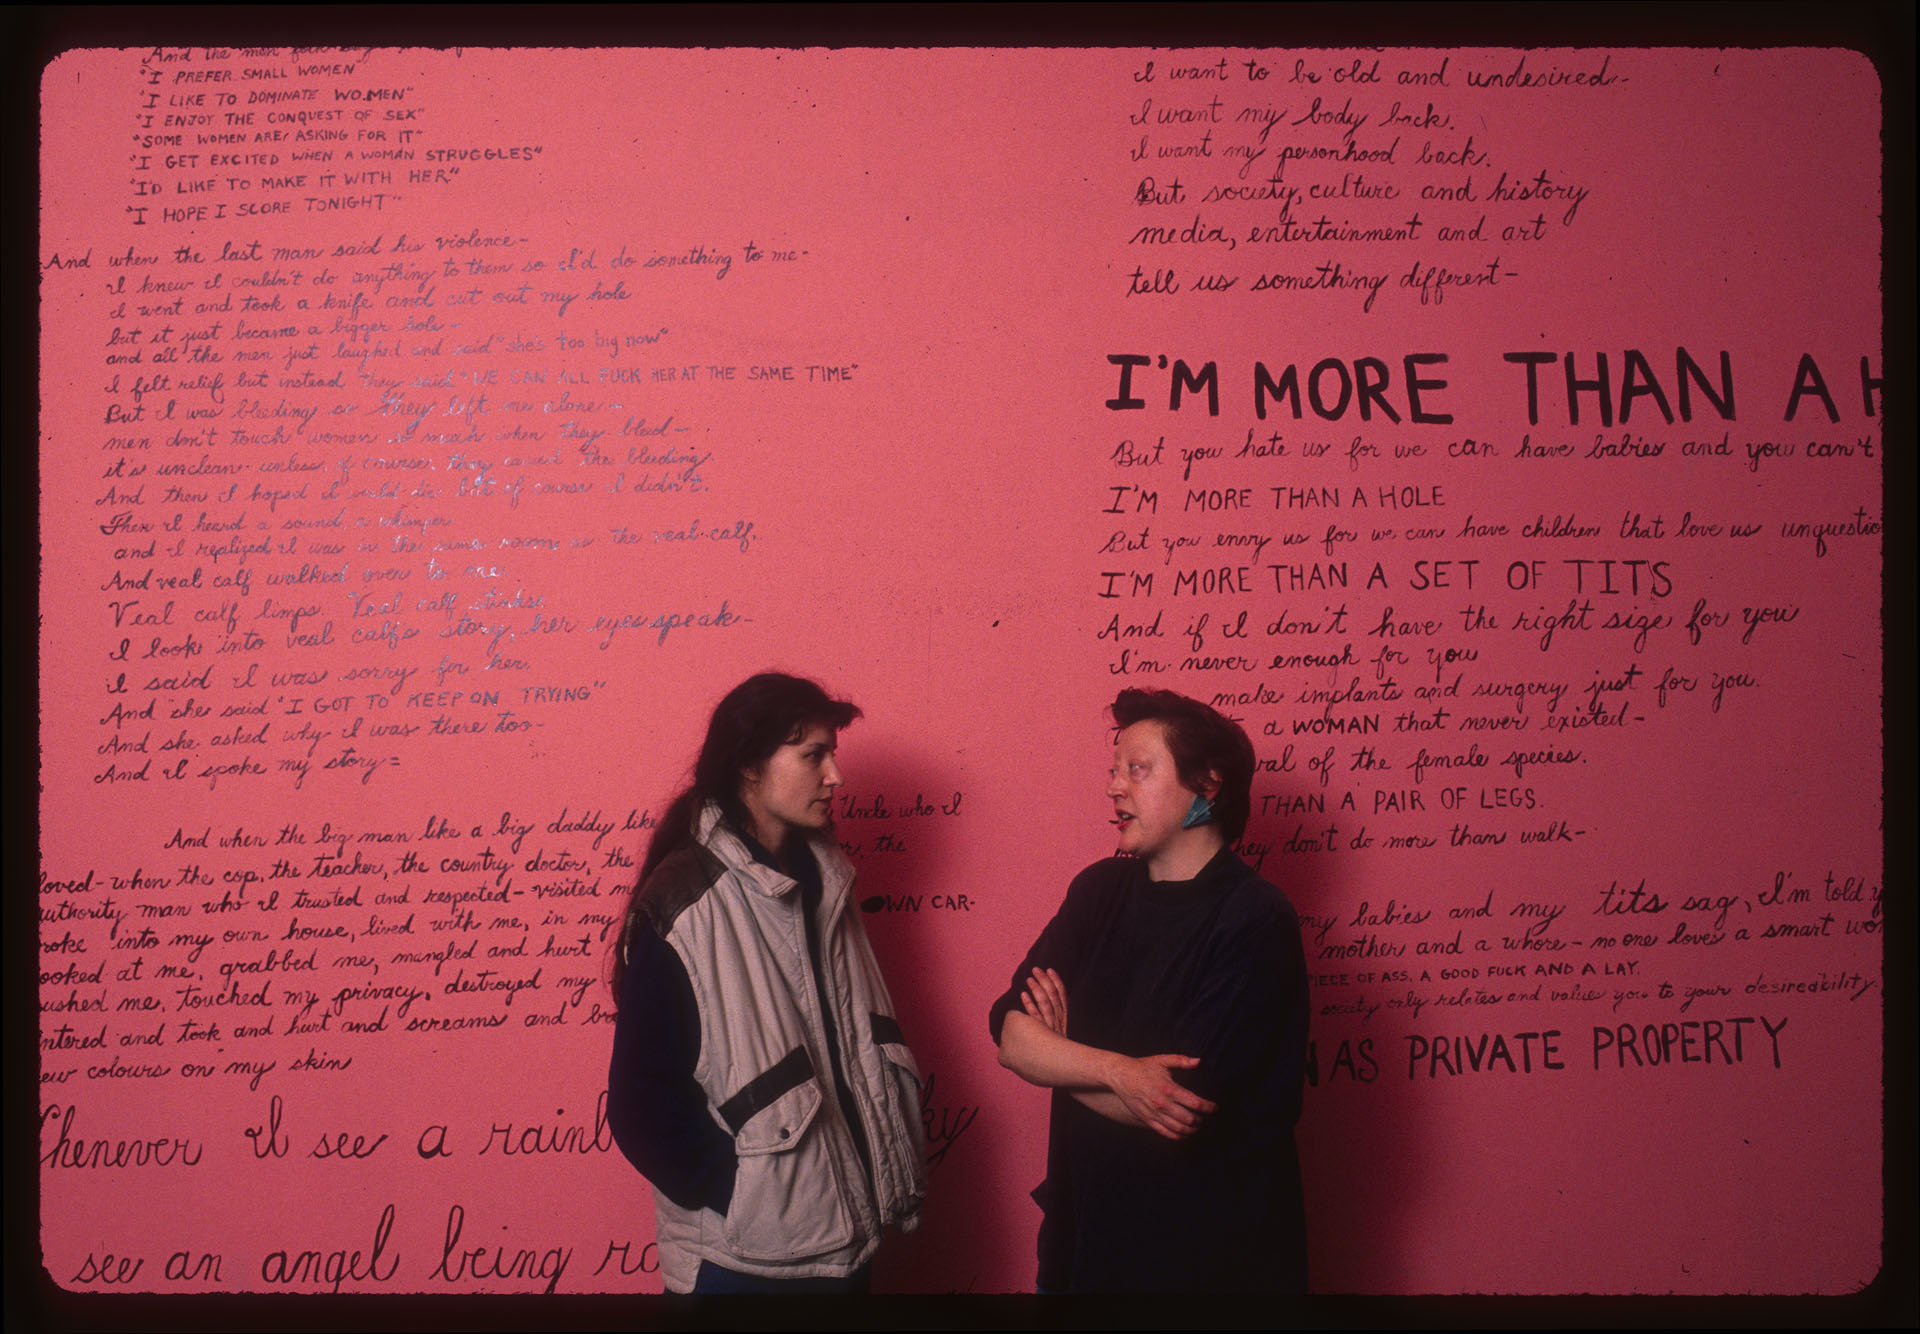 And the men folk say
"I PREFER SMALL WOMEN"
"I LIKE TO DOMINATE WOMEN"
"I ENJOY THE CONQUEST OF SEX"
"SOME WOMEN ARE ASKING FOR IT"
"I GET EXCITED WHEN A WOMAN STRUGGLES"
"I'D LIKE TO MAKE IT WITH HER"
"I HOPE I SCORE TONIGHT"
And when the last man said his violence-
I knew I couldn't do anything to them so I'd do something to me-
I went and took a knife and cut out my hole
but it just became a bigger hole-
and all the men just laughed and said "she's too big now"
I felt relief but instead they said "WE CAN ALL FUCK HER AT THE SAME TIME"
But I was bleeding so they left me alone-
men don't touch women so much when they bleed-
it's unclean- unless of course they caused the bleeding.
And then I hoped I would die but of course I didn't.
Then I heard a sound, a whimper
and I realized I was in the same room as the veal calf.
And veal calf walked over to me.
Veal calf limps. Veal calf stinks.
I look into veal calfs story, her eyes speak-
I said I was sorry for her
And she said "I GOT TO KEEP ON TRYING"
And she asked why I was there too-
And I spoke my story=
And when the big man like a big daddy like Uncle who I
loved- when the cop, the teacher, the country doctor, the the
authority man who I trusted and respected- visited
broke into my own house, lived with me, in my OWN CAR-
looked at me, grabbed me, mangled and hurt
pushed me, touched my privacy, destroyed my
entered and took and hurt and screams and
new colours on my skin
Whenever I see a
see an angel being
I want to be old and undesired-
I want my body back.
I want my personhood back.
But society, culture and history
media, entertainment and art
tell us something different-
I'M MORE THAN A H
But you hate us for we can have babies and you can't
I'M MORE THAN A HOLE
But you envy us for we can have children that love us unquestio
I'M MORE THAN A SET OF TITS
And if I don't have the right size for you
I'm never enough for you
make implants and surgery just for you.
a WOMAN that never existed-
of the female species.
THAN A PAIR OF LEGS.
they don't do more than walk-
my babies and my tits sag, I'm told
mother and a whore- no one loves a smart
PIECE OF ASS, A GOOD FUCK AND A LAY.
society only relates and values you to your desireability.
AS PRIVATE PROPERTY